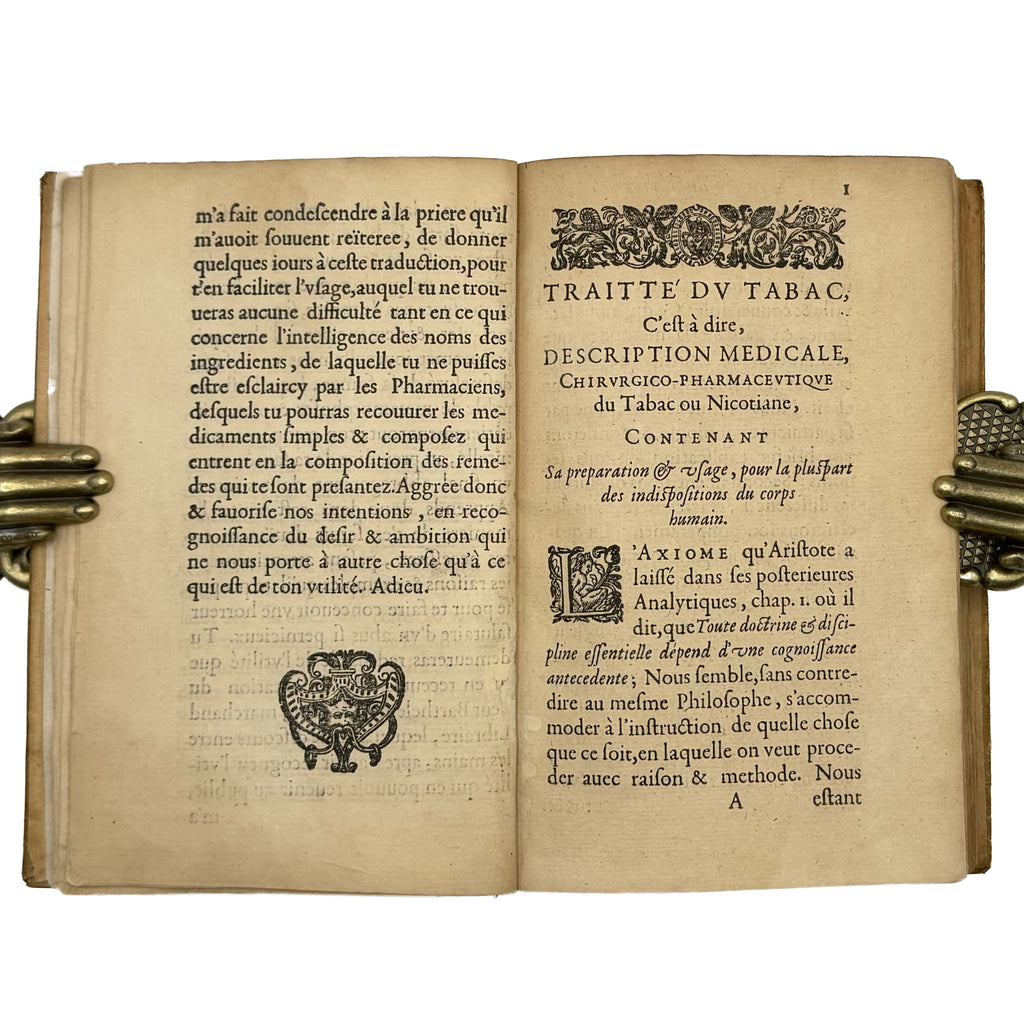 m'a fait condeſcendre à la priere qu'il
m'auoit ſouuent reïteree, de donner
quelques iours à ceſte traduction, pour
t'en faciliter l'vſage, auquel tu ne trou-
ueras aucune difficulté tant en ce qui
concerne l'intelligence des noms des
ingredients, de laquelle tu ne puiſſes
eſtre eſclaircy par les Pharmaciens,
deſquels tu pourras recouurer les me-
dicaments ſimples & compoſez qui
entrent en la compoſition des reme-
des qui te ſont preſantez. Aggrée donc
& fauoriſe nos intentions, en reco-
gnoiſſance du deſir & ambition qui
ne nous porte à autre choſe qu'à ce
qui eſt de ton vtilité. Adieu.
1
TRAITTÉ DV TABAC,
C'eſt à dire,
DESCRIPTION MEDICALE,
CHIRVRGICO-PHARMACEVTIQVE
du Tabac ou Nicotiane,
CONTENANT
Sa preparation & vſage, pour la pluſpart
des indiſpoſitions du corps
humain.
L'AXIOME qu'Ariſtote a
laiſſé dans ſes poſterieures
Analytiques, chap. 1. où il
dit, que Toute doctrine & diſci-
pline eſſentielle dépend d'vne cognoiſſance
antecedente; Nous ſemble, ſans contre-
dire au meſme Philoſophe, s'accom-
moder à l'inſtruction de quelle choſe
que ce ſoit, en laquelle on veut proce-
der auec raiſon & methode. Nous
A eſtant